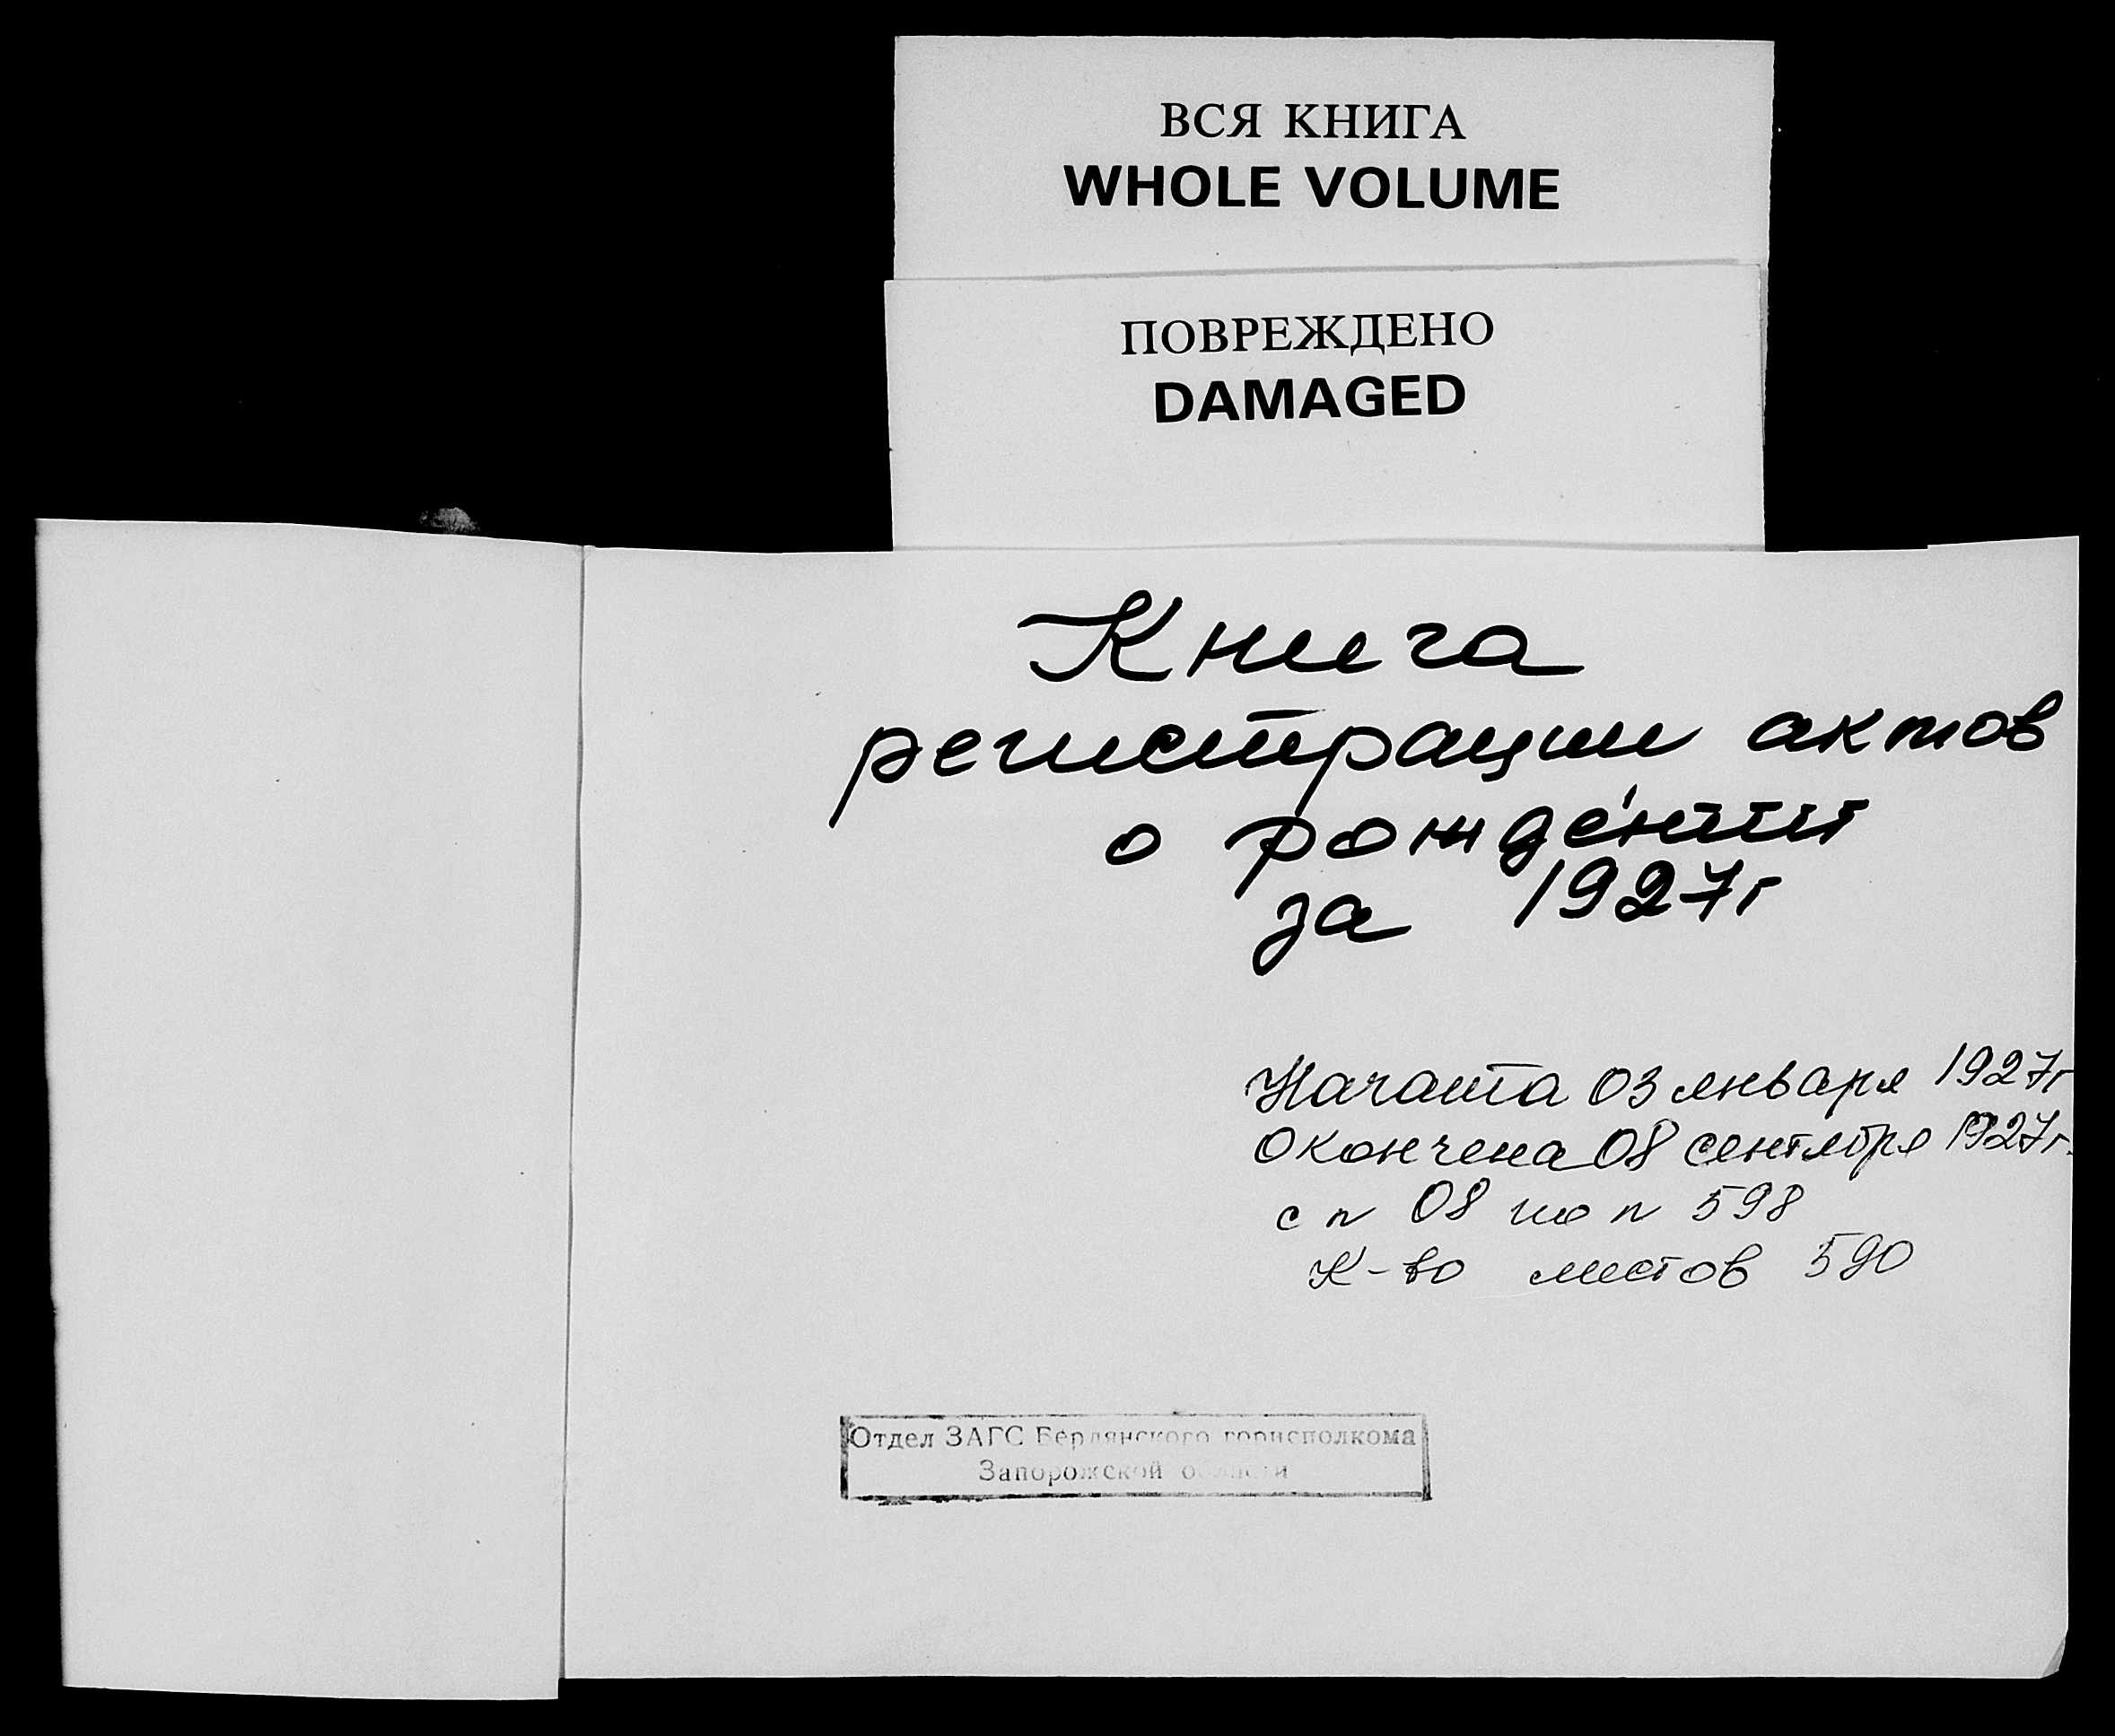 ВСЯ КНИГА
WHOLE VOLUME
ПОВРЕЖДЕНО
DAMAGED
Книга
регистрации актов
о рождении
за 1927г
Начата 03 января 1927г
окончена 08 сентября 1927г.
с n 08 по n 598
К-во листов 590
Отдел ЗАГС Бердянского горисполкома
Запорожской области